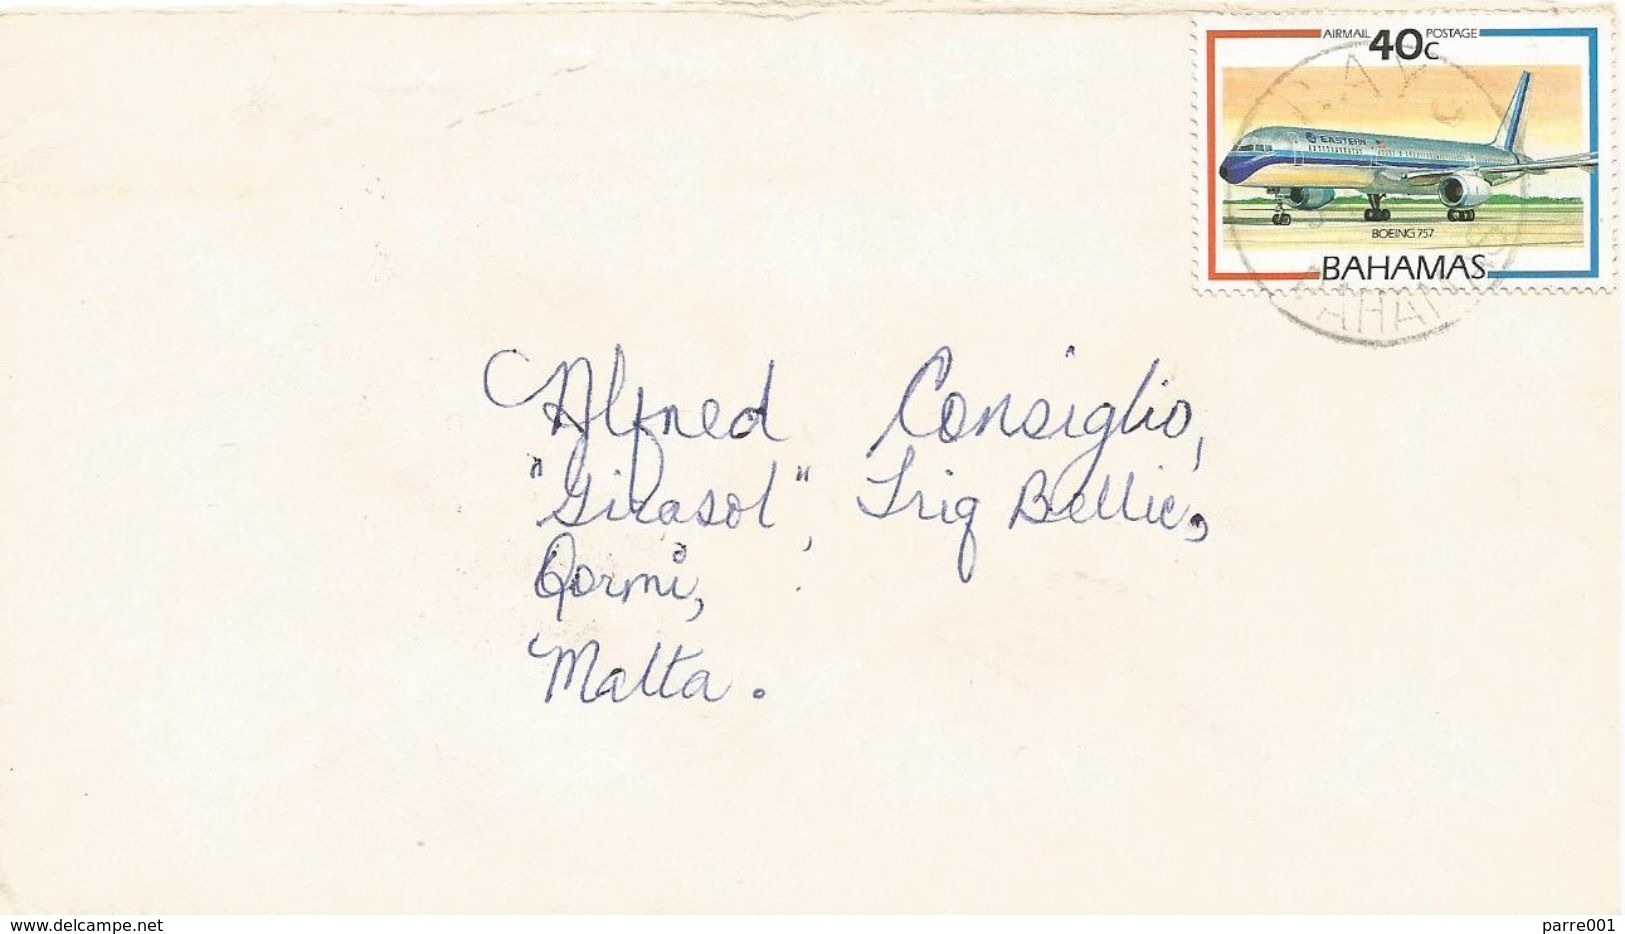 AIRMAIL 40c POSTAGE
EASTERN
BOEING 757
BAHAMAS
BAHAMAS
Alfred Consiglio,
"Girasol", Triq Bellic,
Qormi,
Malta.
delcampe.net
parre001